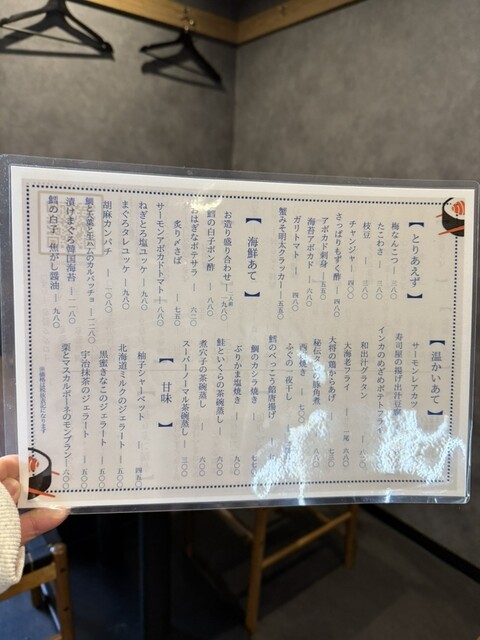 【とりあえず】
梅なんこつ ― 三八〇
たこわさ ― 三八〇
枝豆
チャンジャ ― 四八〇
さっぱりもずく酢 ― 四八〇
アボカド刺身 ― 五五〇
海苔アボカド ― 六八〇
ガリトマト ― 四八〇
蟹みそ明太クラッカー ― 五五〇
【海鮮あて】
お造り盛り合わせ 一人前 九八〇
鱈の白子ポン酢 ― 八八〇
おはぎなポテサラ ― 六二〇
炙り〆さば ― 七五〇
サーモンアボカドトマト ― 八六〇
ねぎとろ塩ユッケ ― 九八〇
まぐろタレユッケ ― 九八〇
胡麻カンパチ ― 一〇八〇
鯛と天葉と生ハムのカルパッチョ ― 一二八〇
漬けまぐろ韓国海苔 ― 一二八〇
鱈の白子 焦がし醤油 ― 九八〇
【温かいあて】
サーモンレアカツ
寿司屋の揚げ出汁豆腐
インカのめざめポテトフライ
和出汁グラタン ― 八八〇
大海老フライ ― 一尾 六八〇
大将の鶏からあげ ― 七三〇
秘伝タレの豚角煮
西京焼き ― 七
ふぐの一夜干し
鱈のべっこう餡唐揚げ
鯛のカシラ焼き ― 七
ぶりかま塩焼き ― 九八〇
鮭といくらの茶碗蒸し ― 六〇〇
煮穴子の茶碗蒸し ― 六〇〇
スーパーノーマル茶碗蒸し ― 三〇〇
【甘味】
柚子シャーベット ― 四五〇
北海道ミルクのジェラート ― 五〇〇
黒蜜きなこのジェラート ― 五〇〇
宇治抹茶のジェラート ― 五〇〇
栗とマスカルポーネのモンブラン ― 八〇〇
※価格は税抜表記になります